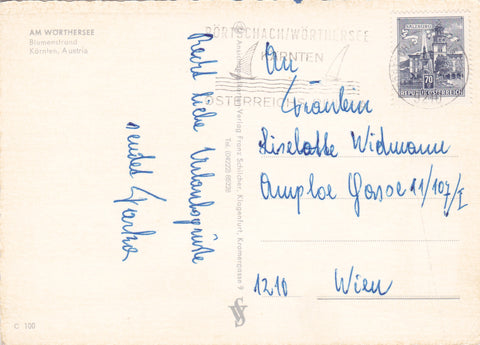 AM WÖRTHERSEE
Blumenstrand
Kärnten, Austria
Recht liebe Urlaubsgrüße
sendet
PÖRTSCHACH/WÖRTHERSEE
KÄRNTEN
ÖSTERREICH
Verlag Franz Schilcher, Klagenfurt, Kramergasse 9
SALZBURG
70
REPUBLIK ÖSTERREICH
An
Fräulein
Liselotte Widmann
Gasse 11/107/I
1210 Wien
C 100